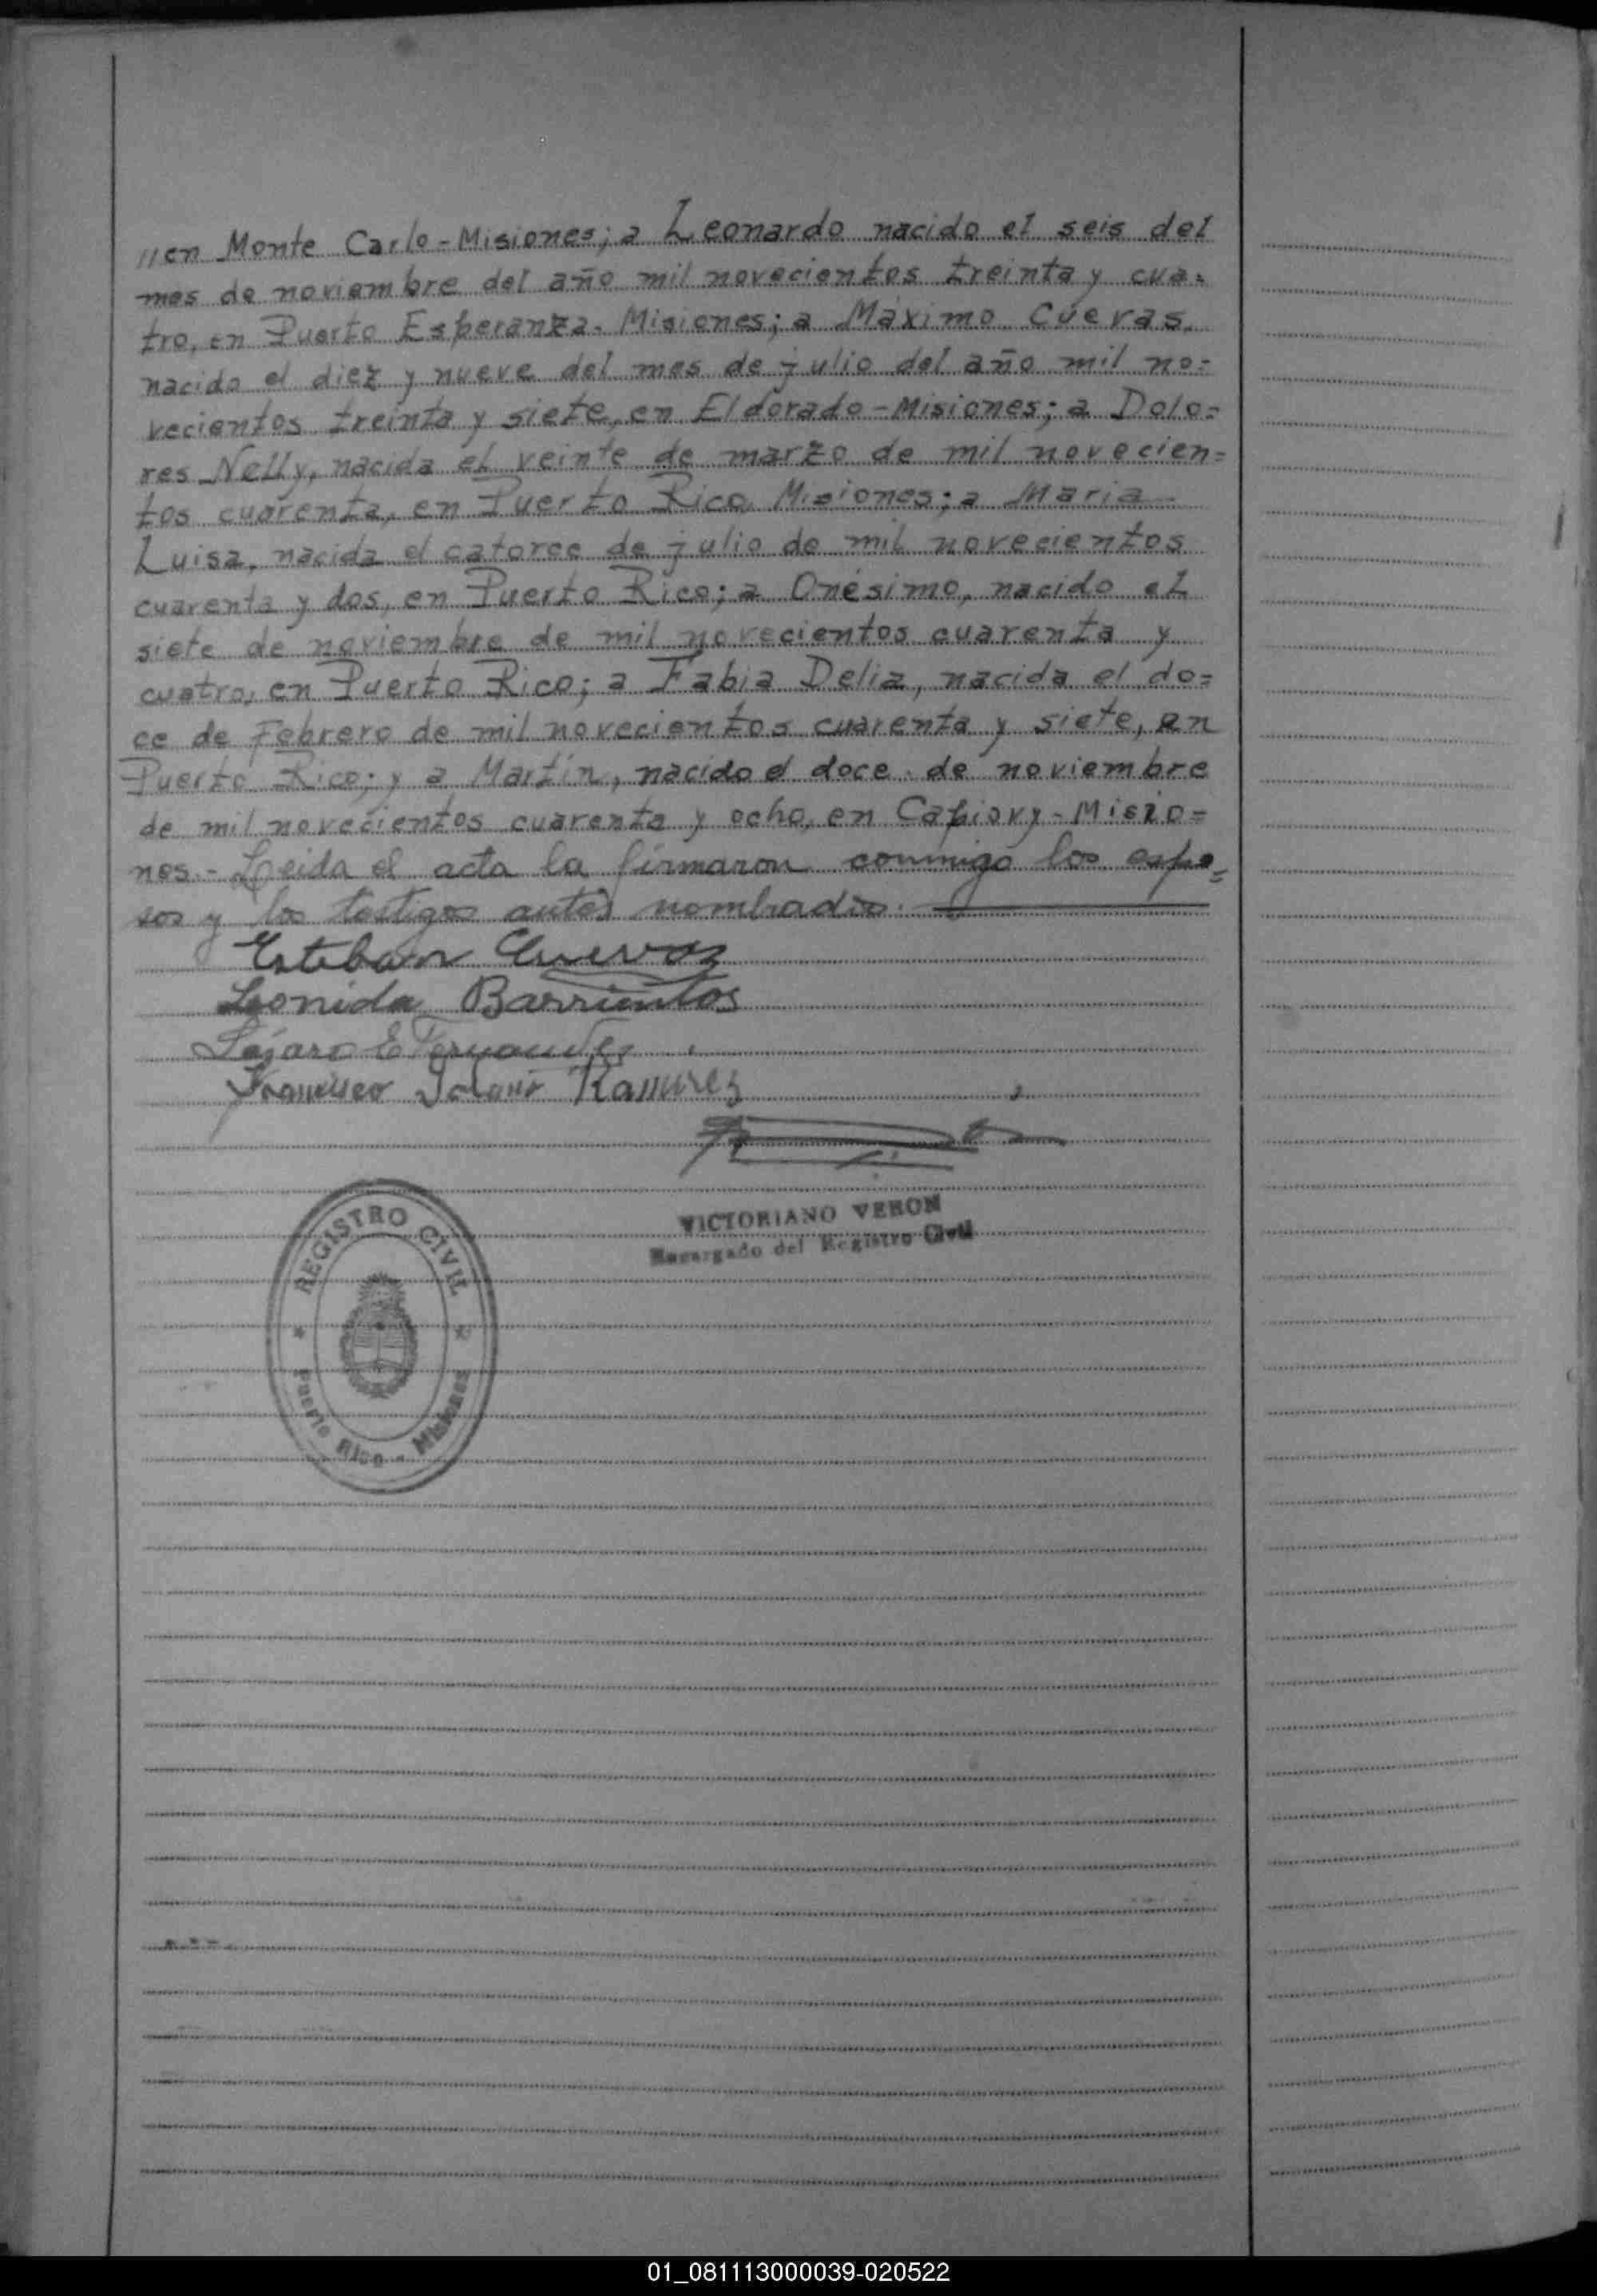 //en Monte Carlo-Misiones; a Leonardo nacido el seis del
mes de noviembre del año mil novecientos treinta y cua=
tro, en Puerto Esperanza-Misiones; a Máximo Cuevas,
nacido el diez y nueve del mes de julio del año mil no=
vecientos treinta y siete, en Eldorado-Misiones; a Dolo=
res Nelly, nacida el veinte de marzo de mil novecien=
tos cuarenta, en Puerto Rico Misiones; a Maria
Luisa, nacida el catorce de julio de mil novecientos
cuarenta y dos, en Puerto Rico; a Onésimo, nacido el
siete de noviembre de mil novecientos cuarenta y
cuatro, en Puerto Rico; a Fabia Delia, nacida el do=
ce de Febrero de mil novecientos cuarenta y siete, en
Puerto Rico; y a Martín, nacido el doce de noviembre
de mil novecientos cuarenta y ocho, en Capiovy-Misio=
nes.- Leida el acta la firmaron conmigo los espo=
sos y los testigos antes nombrados.
Esteban Cuevas
Leonida Barrientos
Lázaro E Fernandez
Francisco Solano Ramirez
VICTORIANO VERON
Encargado del Registro Civil
REGISTRO CIVIL
Puerto Rico - Misiones
01_081113000039-020522